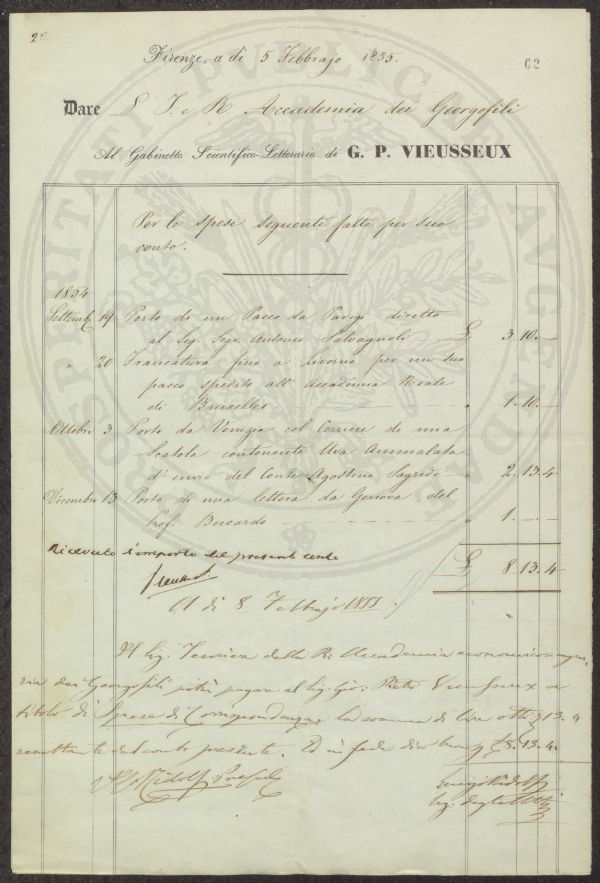 Firenze, a dì 5 Febbrajo 1855.
62
Dare L'I. e R. Accademia dei Georgofili
Al Gabinetto Scientifico-Letterario di G. P. VIEUSSEUX
Per le spese seguenti fatte per suo
conto.
1854
Settembe 19 Porto di un Pacco da Parigi diretto
al Sig. Segr. Antonio Salvagnoli £ 3. 10. —
" 20 Francatura fino a Livorno per un suo
pacco spedito all' Accademia Reale
di Bruxelles " 1. 10. —
Ottobre 3 Porto da Venezia col Corriere di una
Scatola contenente Uva Ammalata
d' invio del Conte Agostino Sagredo " 2. 13. 4
Dicembre 13 Porto di una lettera da Genova del
Prof. Boccardo " 1. —. —
Ricevuto l'importo del presente conto £ 8. 13. 4
Vieusseux
A dì 8 Febbrajo 1855.
Il Sig. Tesoriere della R. Accademia economico-agra-
ria dei Georgofili potrà pagare al Sig. Gio. Pietro Vieusseux a
titolo di Spese di Corrispondenza la somma di lire otto 13. 4
resultante dal conto presente. Ed in fede dico £ 8. 13. 4.
Ridolfi Presid.
Luigi Ridolfi